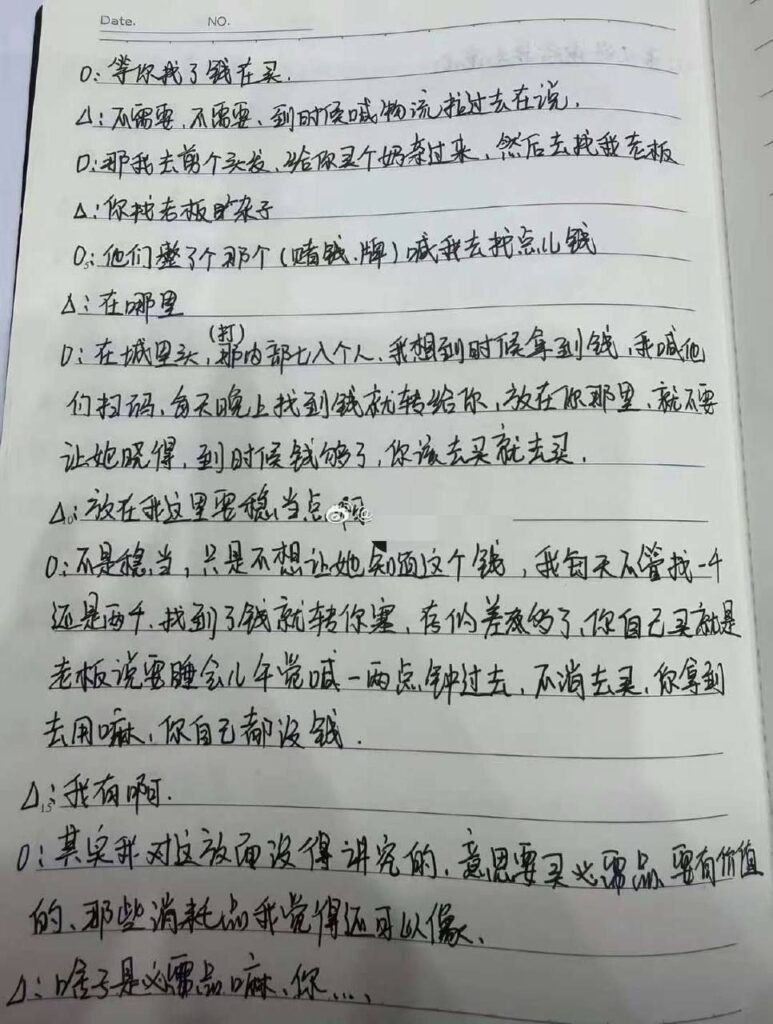 Date. NO.
O: 等你找了钱在买.
Δ: 不需要, 不需要、到时候喊物流拉过去在说.
O: 那我去剪个头发、给你买个奶茶过来、然后去找我老板
Δ: 你找老板旷杂子
O: 他们整了个那个(赌钱、牌)喊我去找点儿钱
Δ: 在哪里
(打)
O: 在城里头, 那内部七八个人、我想到时候拿到钱, 我喊他
们扫码, 每天晚上找到钱就转给你, 放在你那里、就不要
让她晓得, 到时候钱够了, 你该去买就去买.
Δ: 放在我这里要稳当点
O: 不是稳当, 只是不想让她知道这个钱, 我每天不管找一千
还是两千、找到了钱就转你塞, 存的差不多了, 你自己买就是
老板说要睡会儿午觉喊一两点钟过去, 不消去买, 你拿到
去用嘛, 你自己都没钱.
Δ: 我有啊.
15
O: 其实我对这放面没得讲究的, 意思要买必需品, 要有价值
的、那些消耗品我觉得还可以像、
Δ: 啥子是必需品嘛、你....,